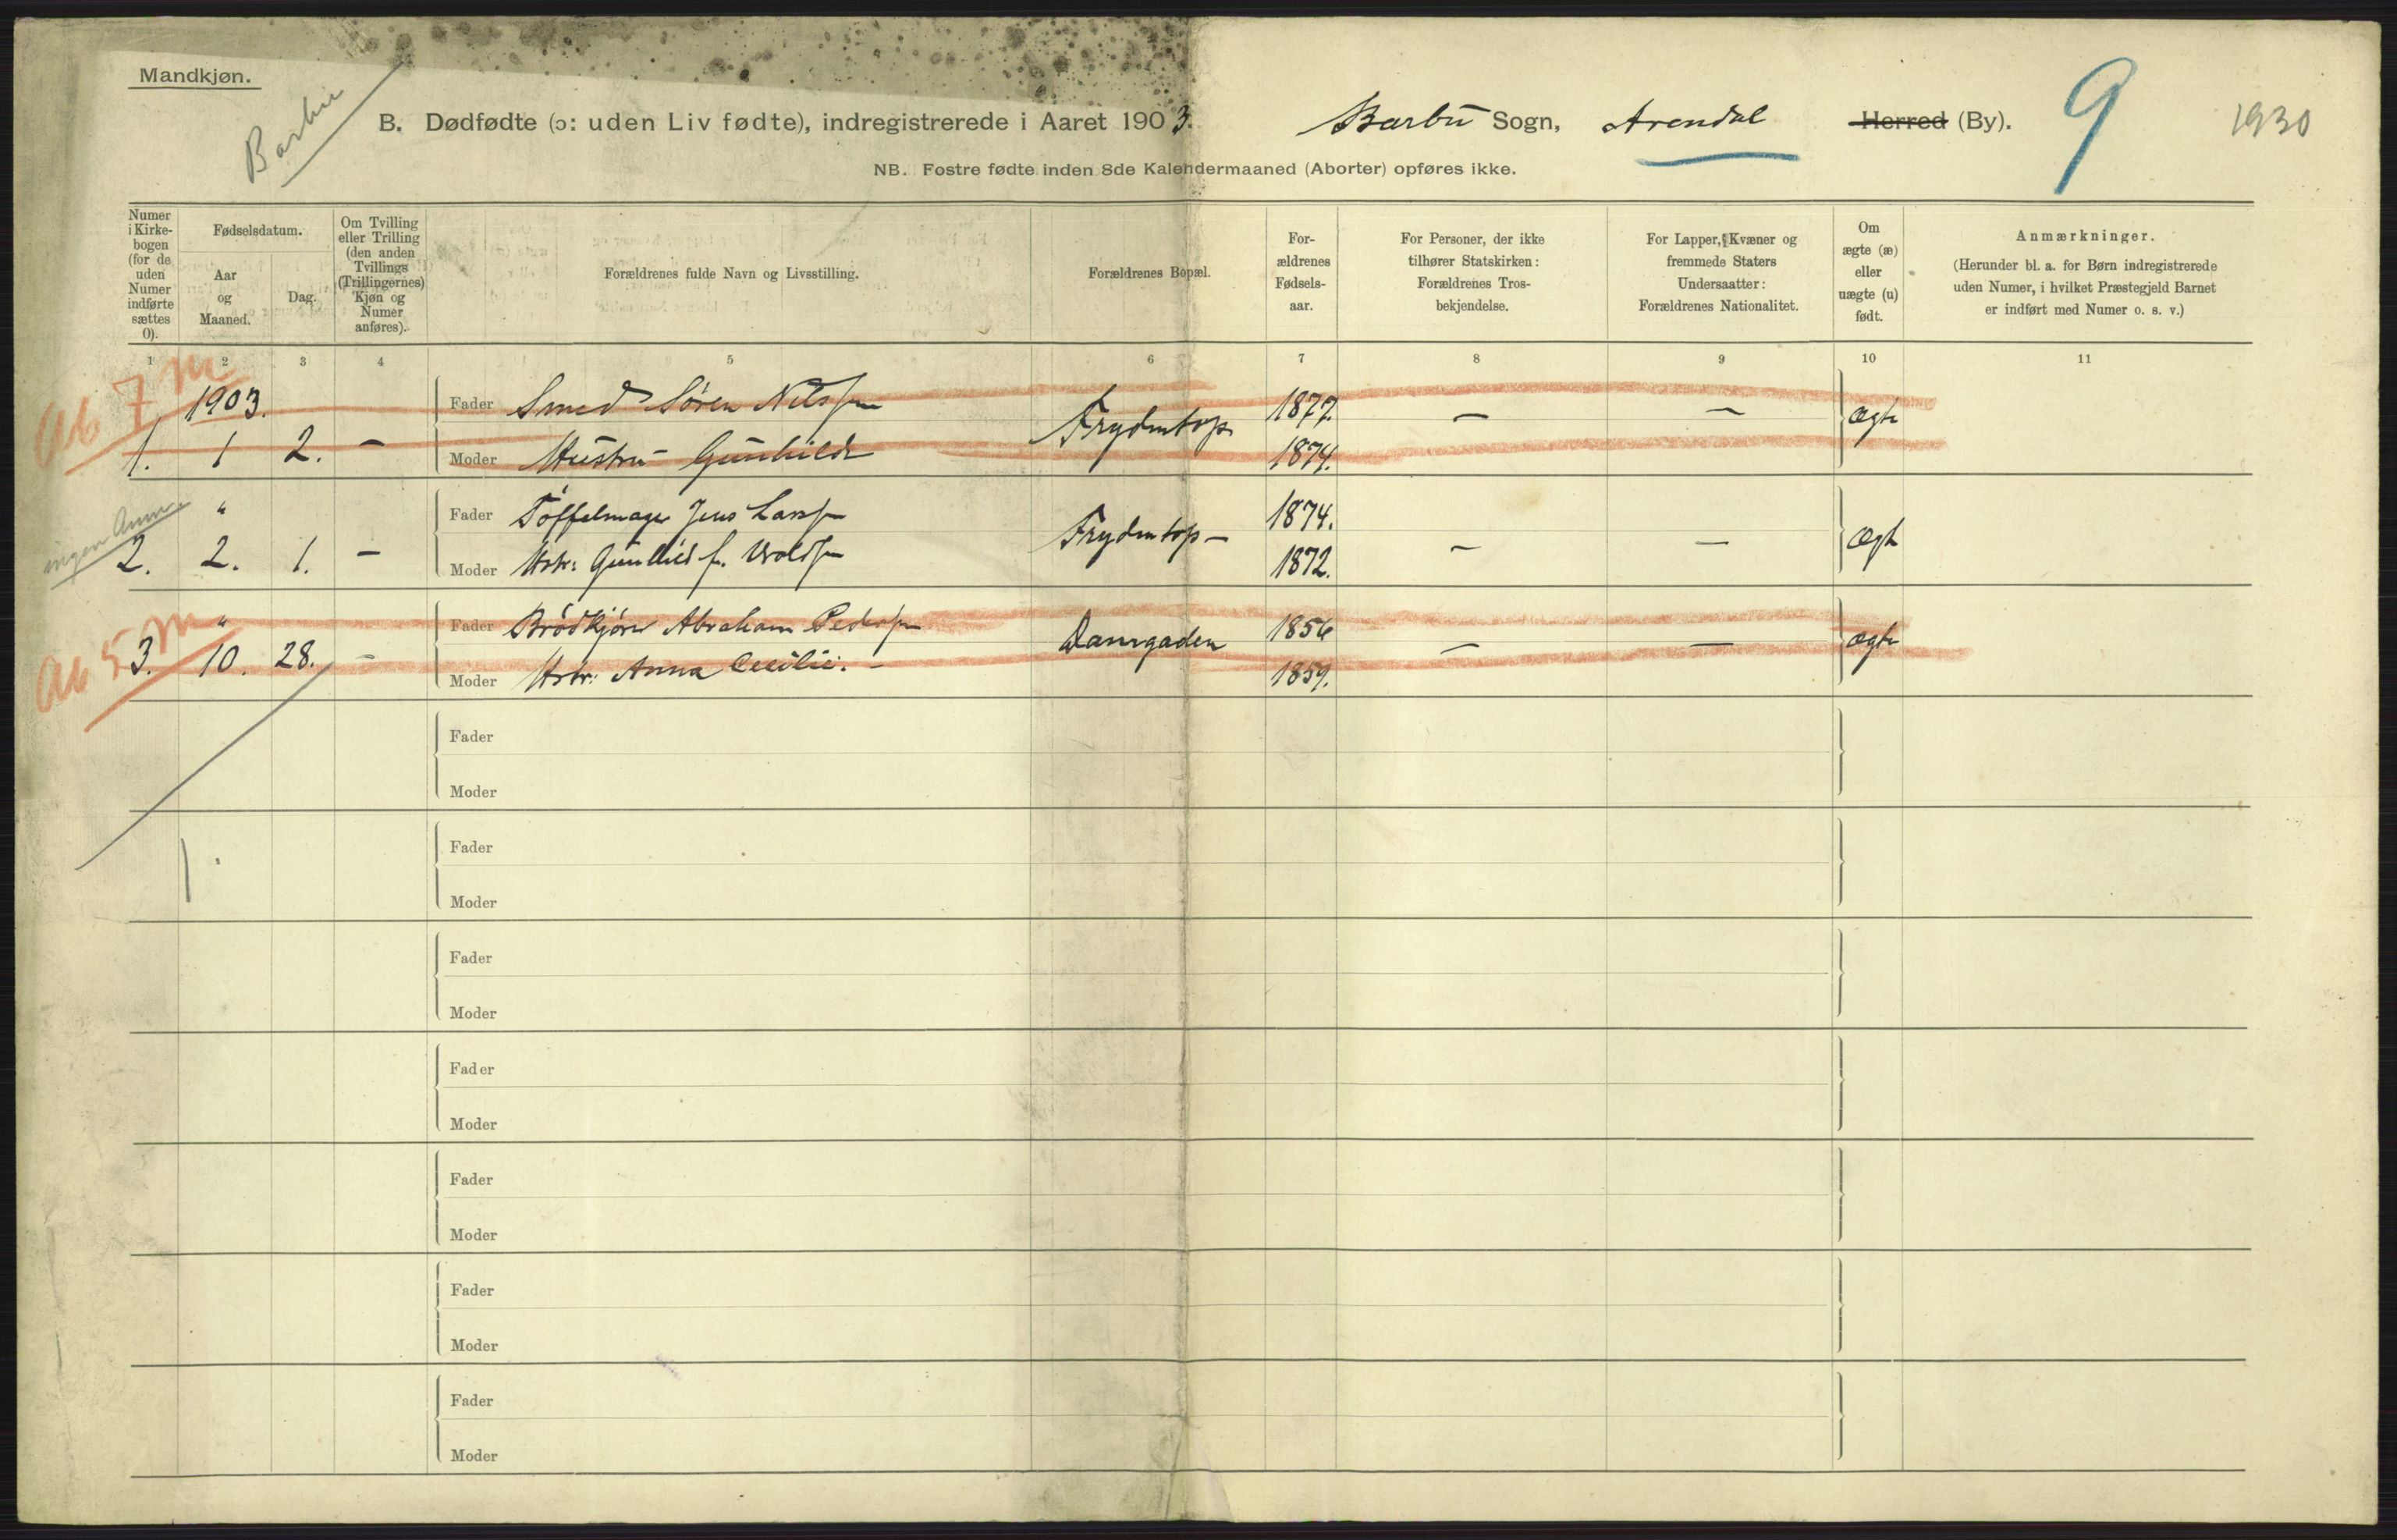 Mandkjøn.
Barbu
B. Dødfødte (ɔ: uden Liv fødte), indregistrerede i Aaret 1903. Barbu Sogn, Arendal Herred (By).
9
1930
NB. Fostre fødte inden 8de Kalendermaaned (Aborter) opføres ikke.
Numer i Kirkebogen (for de uden Numer indførte sættes 0).
Fødselsdatum.
Aar og Maaned.
Dag.
Om Tvilling eller Trilling (den anden Tvillings (Trillingernes) Kjøn og Numer anføres).
Forældrenes fulde Navn og Livsstilling.
Forældrenes Bopæl.
Forældrenes Fødselsaar.
For Personer, der ikke tilhører Statskirken: Forældrenes Trosbekjendelse.
For Lapper, Kvæner og fremmede Staters Undersaatter: Forældrenes Nationalitet.
Om ægte (æ) eller uægte (u) født.
Anmærkninger.
(Herunder bl. a. for Børn indregistrerede uden Numer, i hvilket Præstegjeld Barnet er indført med Numer o. s. v.)
1 2 3 4 5 6 7 8 9 10 11
Ab 7 m
1903.
Fader Smed Søren Nilssen 1877.
1. 1 2. - Moder Hustru Gunhilde Frydentop 1874. - - Ægte
ingen Anm.
" Fader Tøffelmager Jens Larssen 1874.
2. 2. 1. - Moder Hstr: Gunhild f. Woldsen Frydentop - 1872. - - Ægte
Ab 5 m
" Fader Brødkjører Abraham Pedersen 1856
3. 10. 28. - Moder Hstr: Anna Cecilie. - Damgaden 1859. - - ægte
Fader
Moder
Fader
Moder
Fader
Moder
Fader
Moder
Fader
Moder
Fader
Moder
Fader
Moder